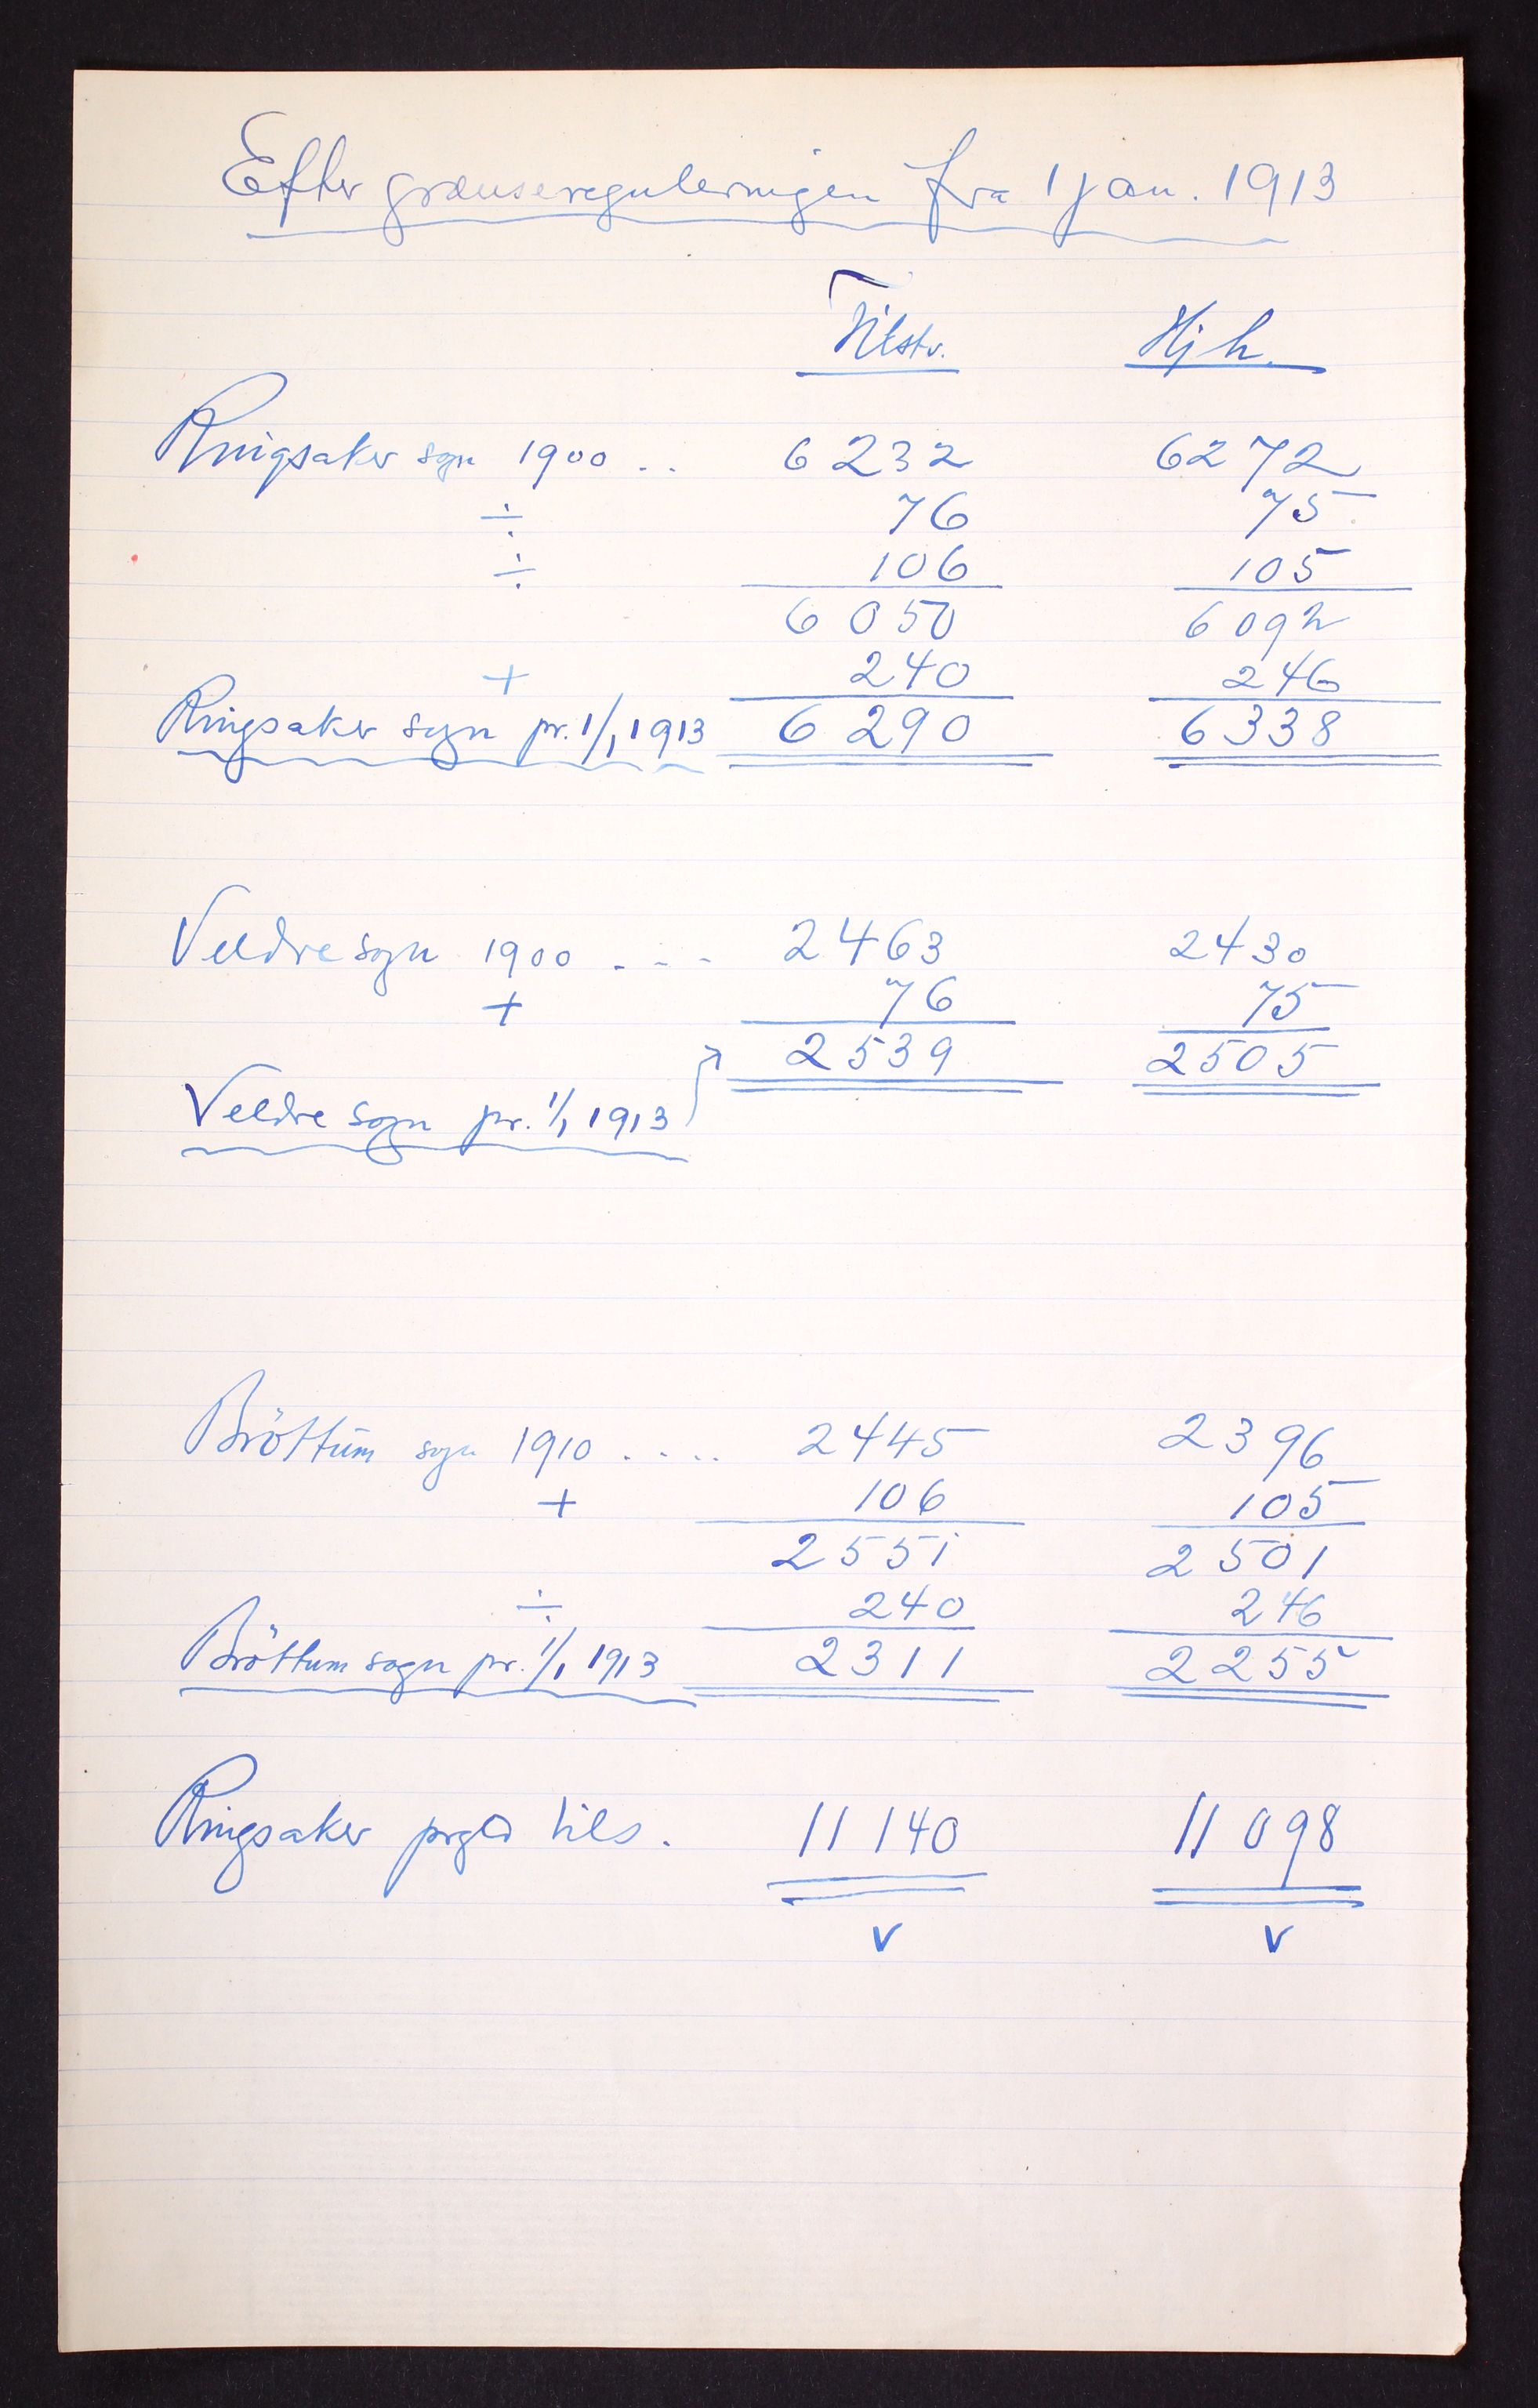 Efter grænsereguleringen fra 1 jan. 1913
Tilstv. Hjh.
Ringsaker sogn 1900 .. 6232 6272
÷ 76 75
÷ 106 105
6050 6092
+ 240 246
Ringsaker sogn pr. 1/1 1913 6290 6338
Veldre sogn 1900 . . . 2463 2430
+ 76 75
2539 2505
Veldre sogn pr. 1/1 1913
Bröttum sogn 1910 .... 2445 2396
+ 106 105
2551 2501
÷ 240 246
Bröttum sogn pr. 1/1 1913 2311 2255
Ringsaker prgld tils. 11 140 11 098
v v